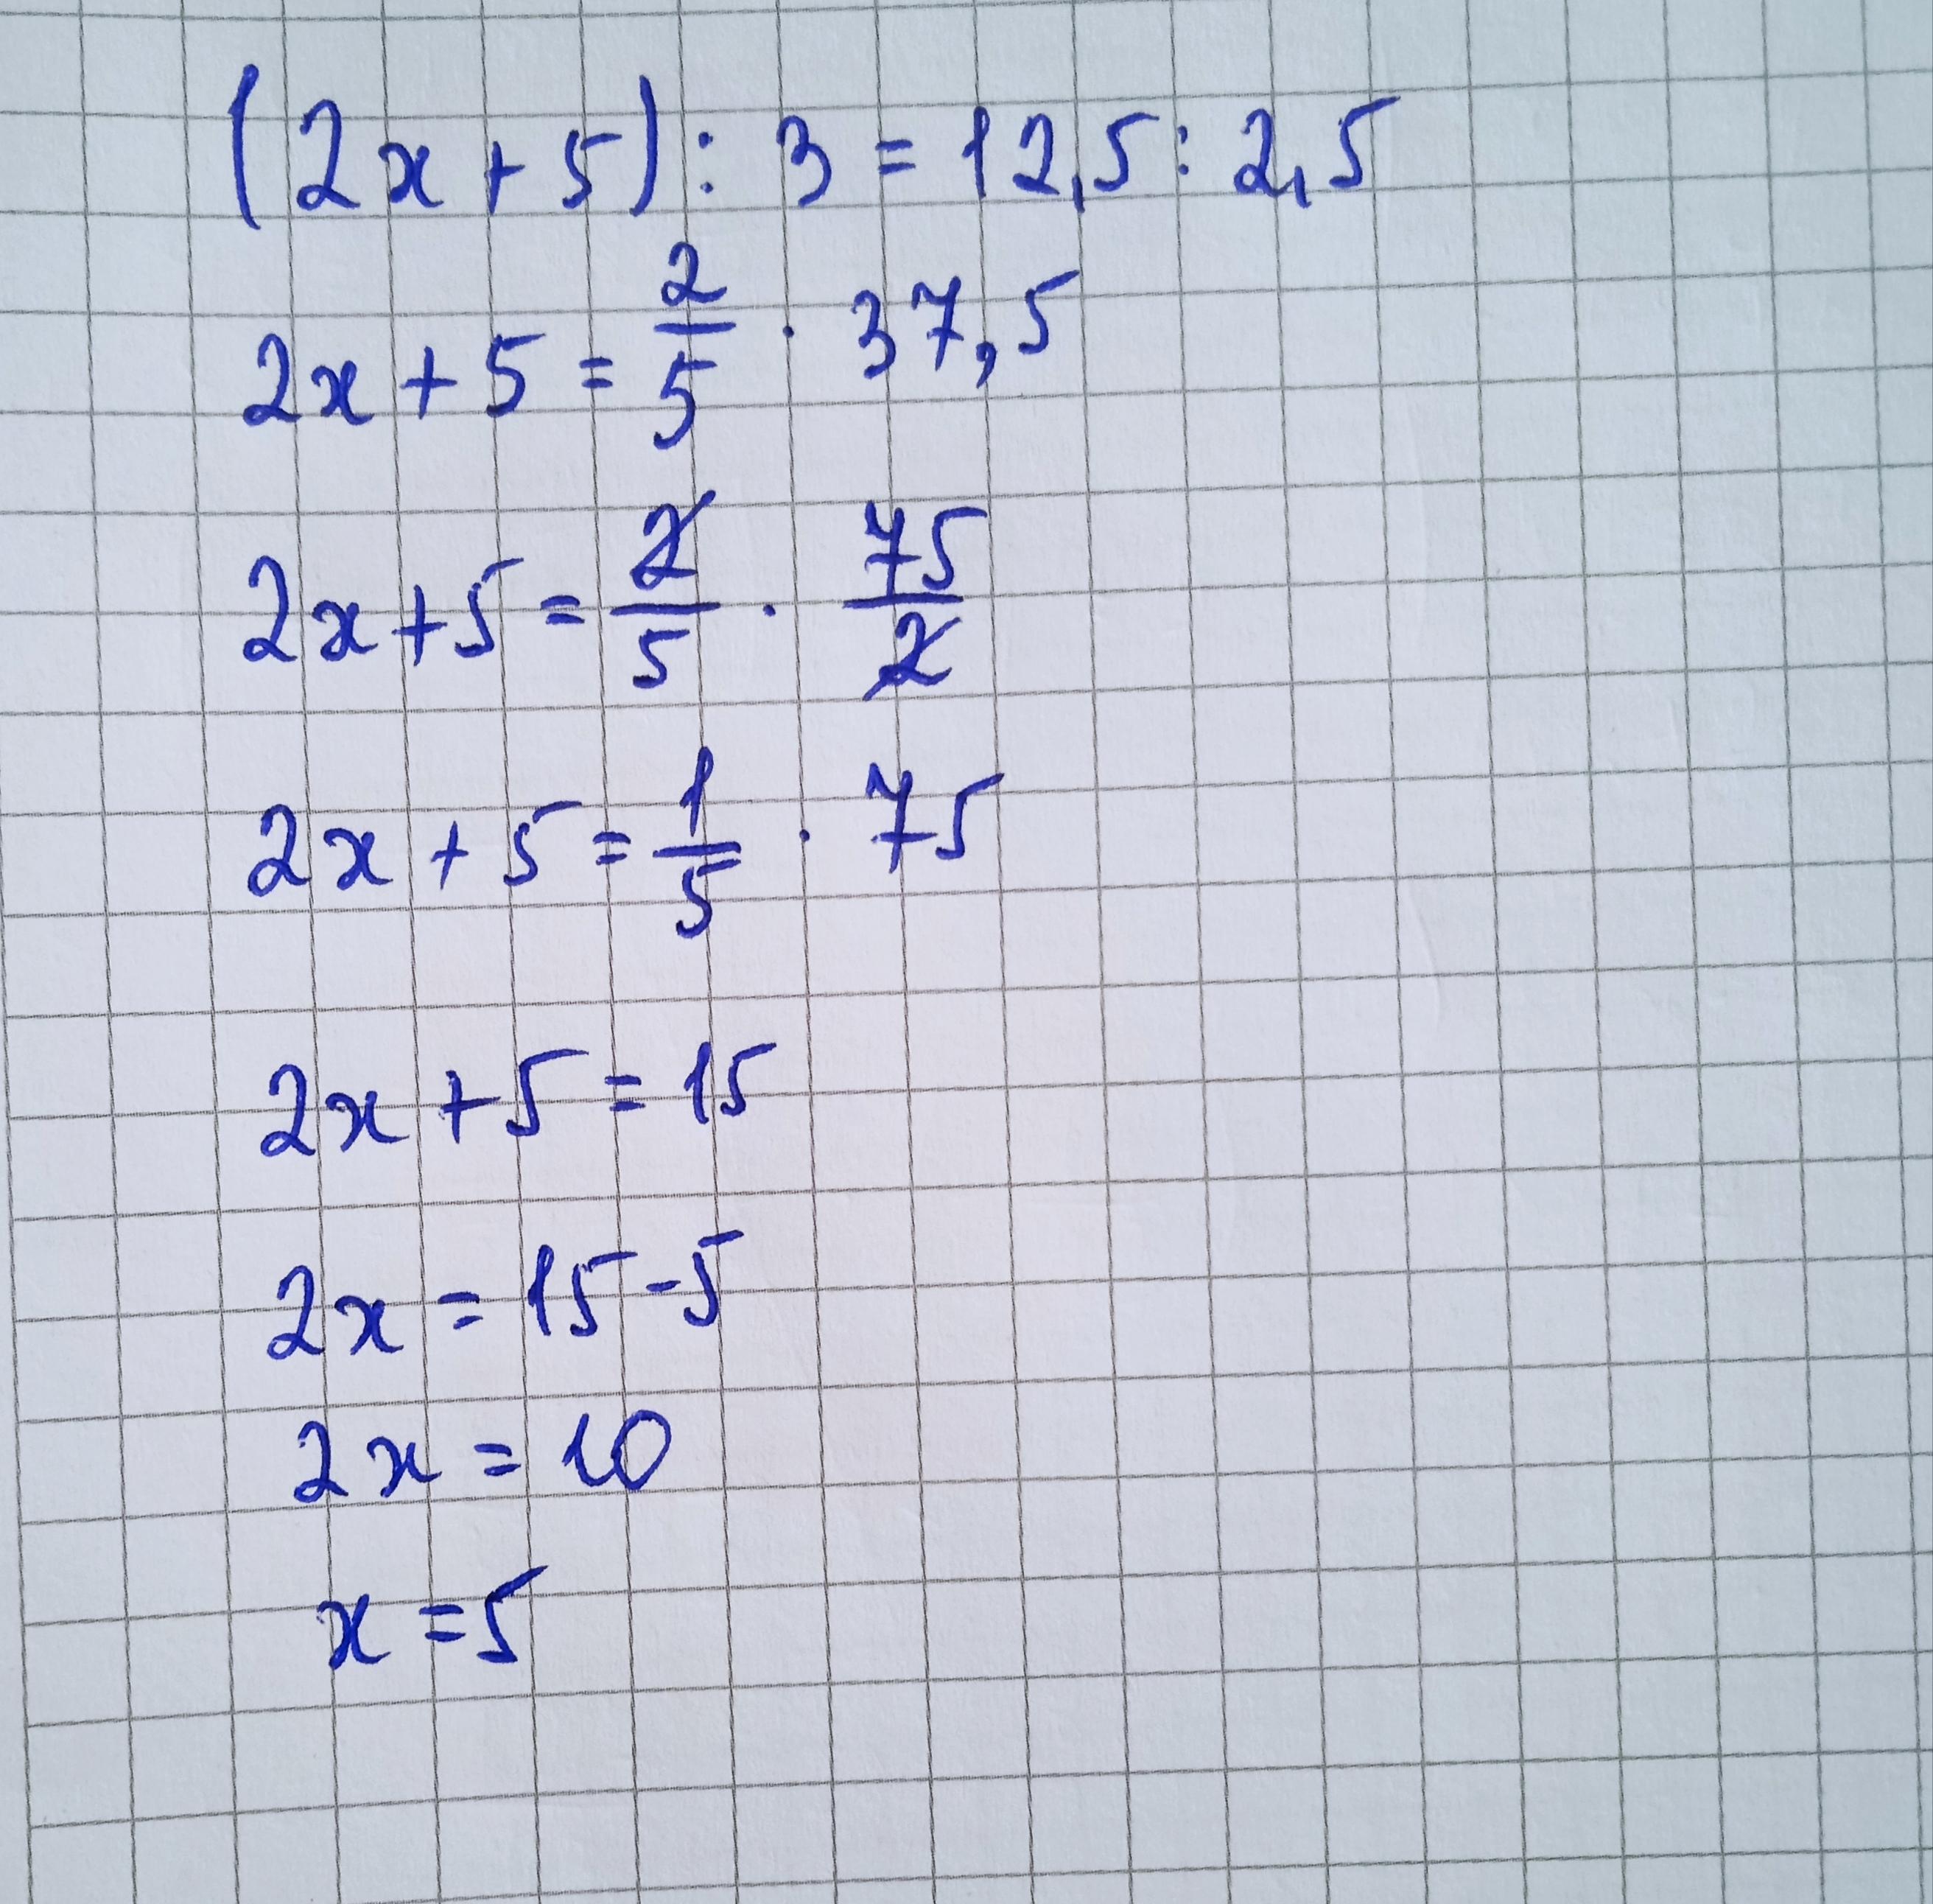 (2x + 5) : 3 = 12,5 : 2,5
2x + 5 = 2/5 · 37,5
2x + 5 = 2/5 · 75/2
2x + 5 = 1/5 · 75
2x + 5 = 15
2x = 15 - 5
2x = 10
x = 5